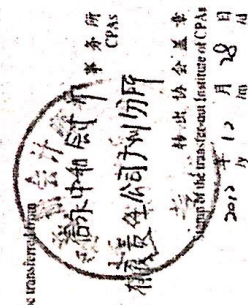 be transferred from
信永中和会计师 事务所
CPAs
有限责任公司广州分所
转出协会盖章
Stamp of the transfer-out Institute of CPAs
2012 年 12 月 28 日
/y /m /d